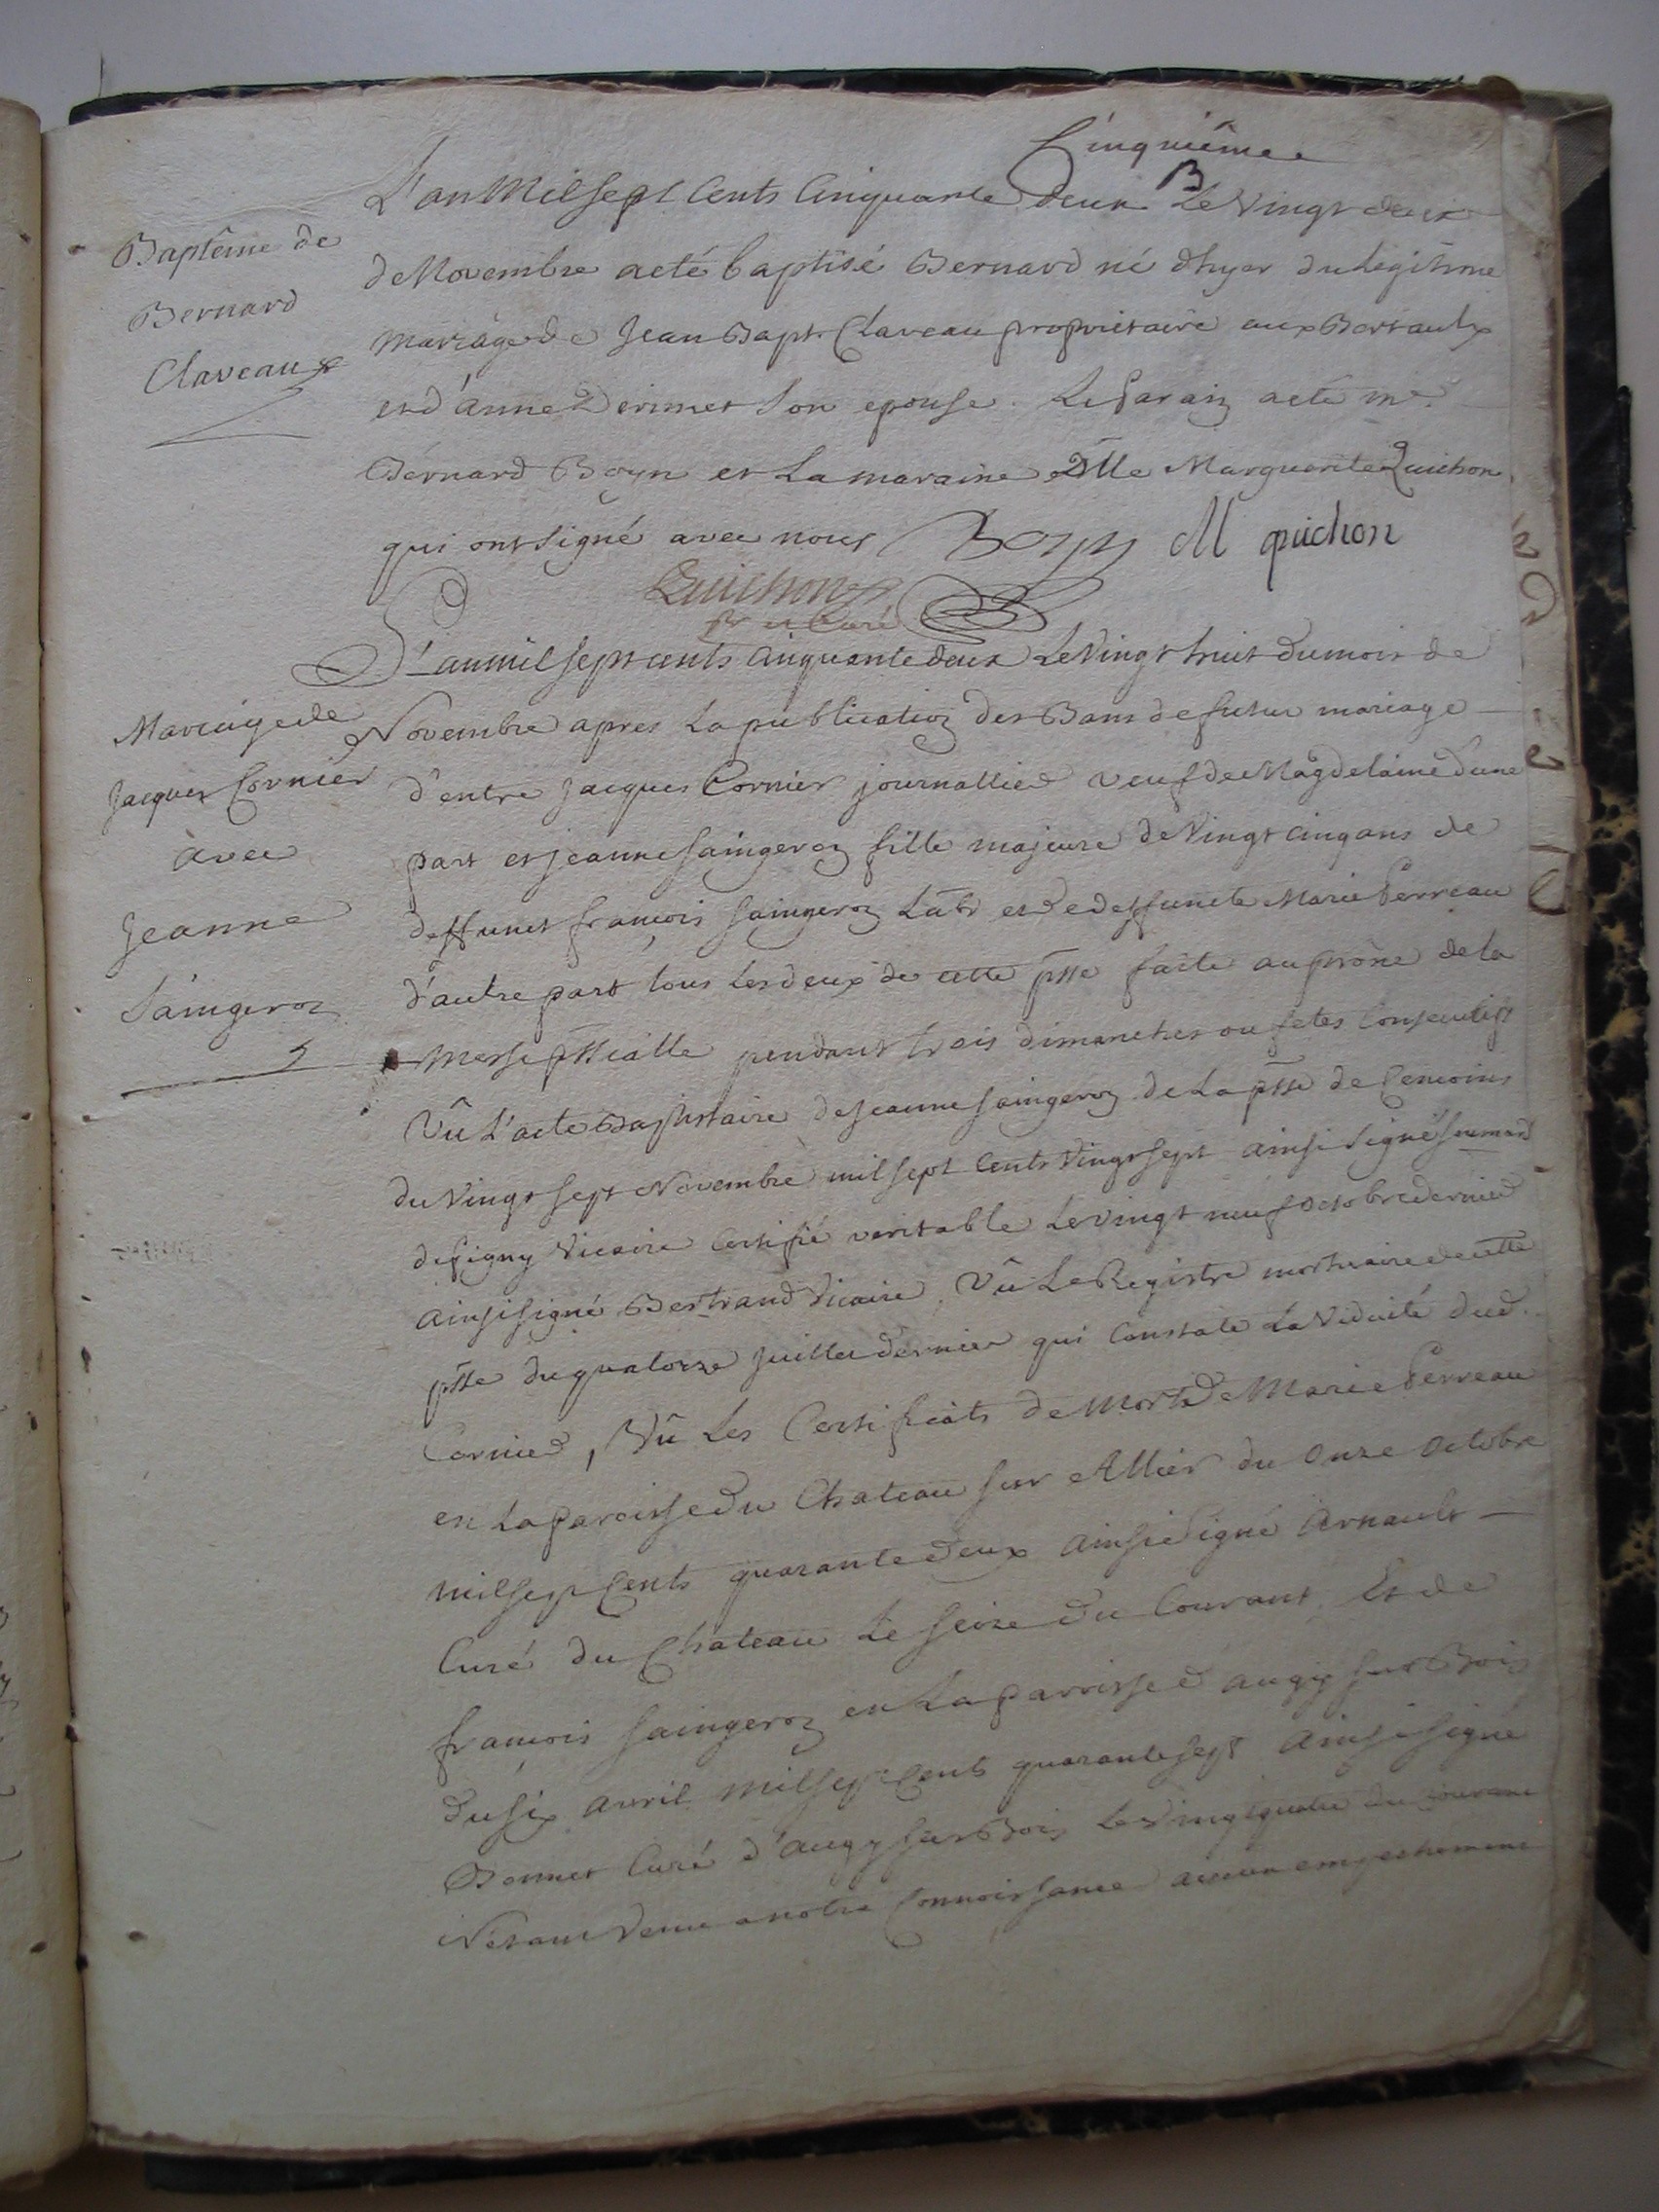 Cinquième
Baptême de
Bernard
Claveaux
L'an Mil sept Cents Cinquante deux Le Vingt deux
de Novembre a eté baptisé Bernard né d'hyer du Legitime
mariage de Jean Bapt. Claveau proprietaire aux Bertaulx
et d'anne son epouse. Le Parain a eté me.
Bernard Boyn et La maraine Dlle Marguerite Quichon
qui ont signé avec nous Boyn M quichon
Quichon
curé
Mariage de
Jacques Cornier
avec
Jeanne
Saingeron
L'an mil sept cents cinquante deux Le Vingt huit du mois de
Novembre apres La publication des Bans de futur mariage
d'entre Jacques Cornier journallier veuf de Magdelaine d'une
part et jeanne saingeron fille majeure de Vingt cinq ans de
deffunct francois saingeron Labr et de deffuncte Marie Perreau
d'autre part tous Les deux de cette psse faite au prône de la
Messe pssialle pendant trois dimanches ou fetes Consecutifs
Vû L'acte Baptistaire de jeanne saingeron de La psse de
du Vingt sept Novembre mil sept Cents Vingt sept ainsi signé
Vicaire Certifié veritable Le vingt neuf octobre dernier
ainsi signé Bertrand Vicaire, Vû Le Registre mortuaire de cette
psse du quatorze juillet dernier qui Constate La Viduité dud.
Cornier, Vû Les Certificats de Mort de Marie Perreau
en La paroisse du Chateau sur Allier du onze octobre
mil sept Cents quarante deux ainsi signé Arnault
Curé du Chateau Le seize du Courant, Et de
francois saingeron en La parroisse d'augy sur Bois
du six avril mil sept Cents quarante sept ainsi signé
Bonnet Curé d'augy sur Bois Le Vingt quatre du courant
N'etant venu a notre Connoissance aucun empechement